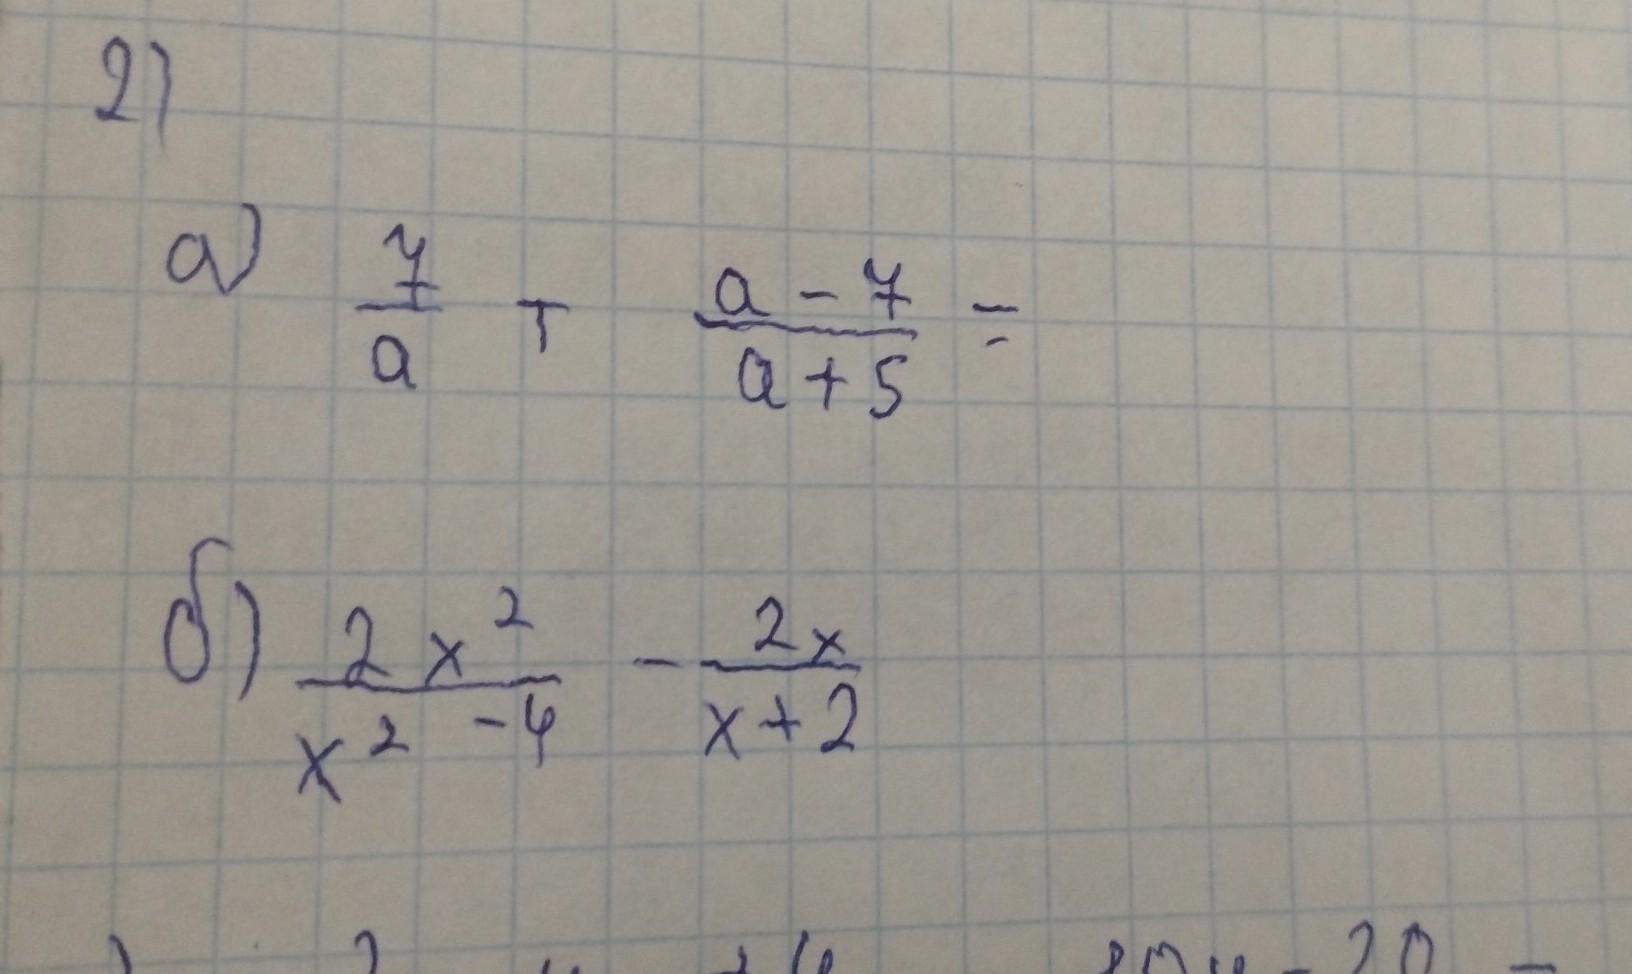 2)
а) 7/a + (a - 7)/(a + 5) =
б) 2x²/(x² - 4) - 2x/(x + 2)